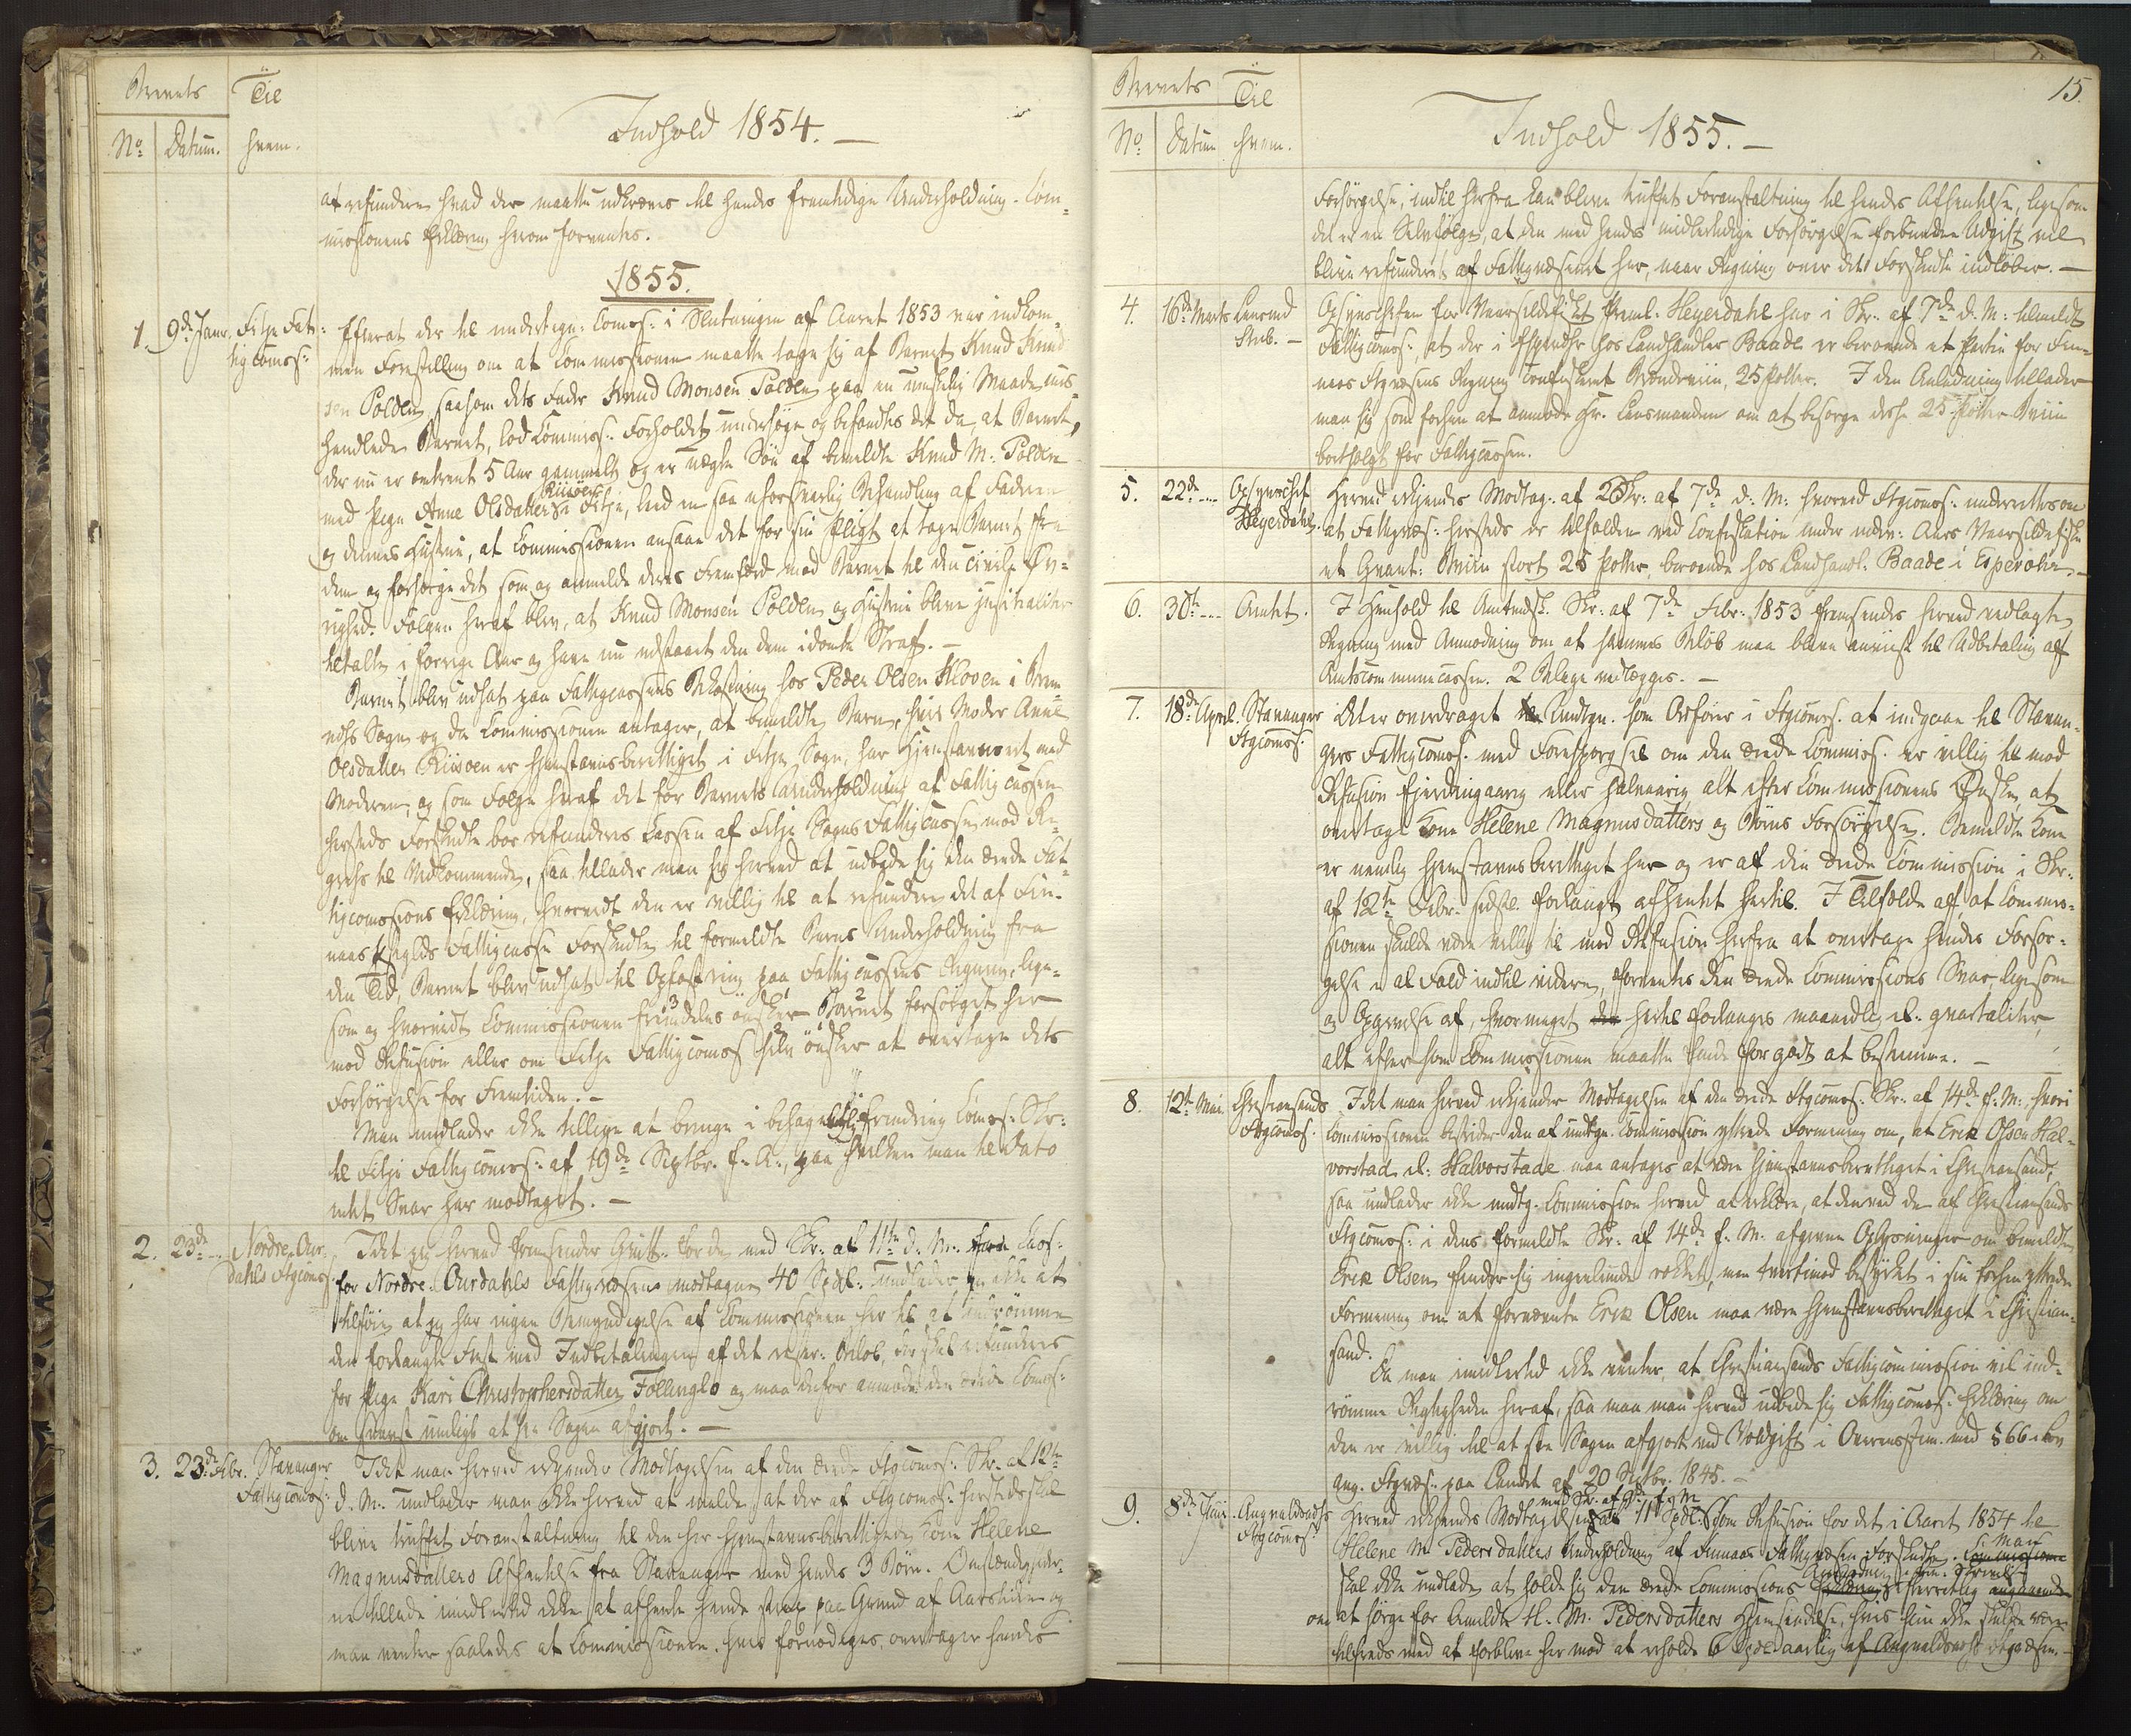 Brevets
Til
No
Datum.
hvem.
Indhold 1854. —
at refundere hvad der maatte udkræves til hendes fremtidige Underholdning. Com-
missionens Erklæring herom forventes.
1855.
1.
9de Janr.
Fitje Fat-
tigcomss:
Efterat der til undertegn: Comss: i Slutningen af Aaret 1853 var indkom-
men Forestilling om at Commissionen maatte tage sig af Barnet Knud Knud-
sen Polden, saasom dets Fader Knud Monsen Polden paa en umskelig Maade mis-
handlede Barnet, lod Commiss: Forholdet undersøge og befandtes det da, at Barnet,
der nu er omtrent 5 Aar gammelt og er uægte Søn af bemeldte Knud M. Polden
med Pige Anne Olsdatter Riisøen Fitje, led en saa uforsvarlig Behandling af Faderen
og dennes Hustrue, at Commissionen ansaae det for sin Pligt at tage Barnet fra
dem og forsørge det som og anmelde deres Fremfærd mod Barnet til den civile Øv-
righed. Følgen heraf blev, at Knud Monsen Polden og Hustrue bleve justitialiter
tiltalte i forrige Aar og have nu udstaaet den dem idømte Straf. —
Barnet blev udsat paa Fattigcassens Bekostning hos Peder Olsen Kloven i Brem-
næs Sogn og da Commissionen antager, at bemeldte Barn, hvis Moder Anne
Olsdatter Riisøen er hjemstavnsberettiget i Fitje Sogn, har Hjemstavnsret med
Moderen, og som Følge heraf det for Barnets Underholdning af Fattigcassen
hersteds Forskudte bør refunderes Cassen af Fitje Sogns Fattigcasse mod Re-
gress til Vedkommende, saa tillader man sig herved at udbede sig den ærede Fat-
tigcomssions Erklæring, hvorvidt den er villig til at refundere det af Fin-
naas Præglds Fattigcasse Forskudte til formeldte Barns Underholdning fra
den Tid, Barnet blev udsat til Opfostring paa Fattigcassens Regning, lige-
som og hvorvidt Commissionen fremdeles ønsker Barnet forsørget her
mod Refusion eller om Fitje Fattigcomss selv ønsker at overtage dets
Forsørgelse for Fremtiden. —
Man undlader ikke tillige at bringe i behagelig Erindring Comss: Skr:
til Fitje Fattigcomss: af 19de Septbr. f. A., paa hvilken man til Dato
intet Svar har modtaget. —
2.
23de —
Nordre Our-
dahls Ftgcomss.
Idet jeg herved fremsender Qvitt. for de med Skr. af 11te d. M. fra Cass.
for Nordre Ourdahls Fattigvæsen modtagne 40 Spdl: undlader jeg ikke at
tilføie at jeg har ingen Bemyndigelse af Commissionen her til at indrømme
den forlangte Frist med Indbetalingen af det rester: Beløb, der skal refunderes
for Pige Kari Christophersdatter Føllinglo og maa derfor anmode den ærede Comss:
om snarest muligt at see Sagen afgjort. —
3.
23de Febr.
Stavanger
Fattigcomss:
Idet man herved erkjender Modtagelsen af den ærede Ftgcomss: Skr. af 12te
d. M. undlader man ikke herved at melde, at der af Ftgcomss: hersteds skal
blive truffet Foranstaltning til den her hjemstavnsberettigede Kone Helene
Magnusdatters Afhentelse fra Stavanger med hendes 3 Børn. Omstændigheder-
ne tillade imidlertid ikke at afhente hende strax paa Grund af Aarstiden og
man venter saaledes at Commissionen, hvis fornødiges, overtager hendes
15.
Brevets
Til
No
Datum
hvem.
Indhold 1855. —
Forsørgelse, indtil herfra kan blive truffet Foranstaltning til hendes Afhentelse, ligesom
det er en Selvfølge, at den med hends midlertidige Forsørgelse forbundne Udgift vil
blive refunderet af Fattigvæsenet her, naar Regning over det Forskudte indløber. —
4.
16de Marts
Lensmd
Stub. —
Opsynschefen for Vaarsildefisket Preml. Heyerdahl har i Skr. af 7de d. M: tilmeldt
Fattigcomss: at der i Espevær hos Landhandler Baade er beroende et Partie for Fin-
naas Ftgvæsens Regning confiskeret Brændeviin, 25 Potter. I den Anledning tillader
man sig som forhen at anmode Hr. Lensmanden om at besørge disse 25 Potter Bviin
bortsolgt for Fattigcassen.
5.
22de —
Opsynschef
Heyerdahl.
Herved erkjendes Modtag. af Skr. af 7de d. M: hvorved Ftgcomss: underrettes om
at Fattigvæs: hersteds er tilfalden ved Confiskation under indev: Aars Vaarsildefiske
et Qvant: Bviin stort 25 Potter, beroende hos Landhandl. Baade i Espevær. —
6.
30te —
Amtet.
I Henhold til Amtmdsk. Skr: af 7de Febr: 1853 fremsendes herved vedlagte
Regning med Anmodning om at sammes Beløb maa blive anviist til Udbetaling af
Amtscommunecassen. 2 Bilage vedlægges. —
7.
18de April.
Stavanger
Ftgcomss:
Det er overdraget Undtgn. som Ordfører i Ftgcomss. at indgaae til Stavan-
gers Fattigcomss. med Forespørgsel om den ærede Commiss. er villig til mod
Refusion fjerdingaarig eller halvaarig alt efter Commissionens Ønske, at
overtage Kone Helene Magnusdatters og Børns Forsørgelse. Bemeldte Kone
er nemlig hjemstavnsberettiget her og er af den ærede Commission i Skr.
af 12te Febr. sidstl. forlangt afhentet hertil. I Tilfælde af, at Commis-
sionen skulde være villig til mod Refusion herfra at overtage hendes Forsør-
gelse i al Fald indtil videre, forventes den ærede Commissions Svar, ligesom
og Opgivelse af, hvormeget hertil forlanges maanedlig el. qvartaliter,
alt eftersom Commissionen maatte finde for godt at bestemme. —
8.
12te Mai.
Christiansands
Ftgcomss.
Idet man herved erkjender Modtagelsen af den ærede Ftgcomss: Skr. af 14de f. M. hvori
Commissionen bestrider den af undtgn. Commission yttrede Formening om, at Erik Olsen Hal-
vorstad el. Halvorstade maa antages at være hjemstavnsberettiget i Christiansand,
saa undlader ikke undtg. Commission herved at erklære, at den ved de af Christiansands
Ftgcomss: i dens formeldte Skr. af 14de f. M. afgivne Oplysninger om bemeldte
Erik Olsen finder sig ingenlunde rokket, men tvertimod bestyrket i sin forhen yttrede
Formening om at fornævnte Erik Olsen maa være hjemstavnsberettiget i Christian-
sand.
Da man imidlertid ikke venter, at Christiansands Fattigcommission vil ind-
rømme Rigtigheden heraf, saa maa man herved udbede sig Fattigcomss. Erklæring om
den er villig til at see Sagen afgjort ved Voldgift i Overensstem. med § 66 i Lov
ang. Ftgvæs. paa Landet af 20 Septbr. 1845. —
9.
8de Juni.
Augvaldsnæs
Ftgcomss.
med Skr. af 9de f. M.
Herved erkjendes Modtagelsen af 11 Spdl. som Refusion for det i Aaret 1854 til
Helene M. Pedersdatters Underholdning af Finnaas Fattigvæsen Forskudte. Commissionen Man
skal ikke undlade at holde sig den ærede Commissions
om at sørge for bemeldte H. M. Pedersdatters Hjemsendelse, hvis hun ikke skulde være
tilfreds med at forblive her mod at erholde 6 Spdl aarlig af Augvaldsnæs Ftgvæsen. —